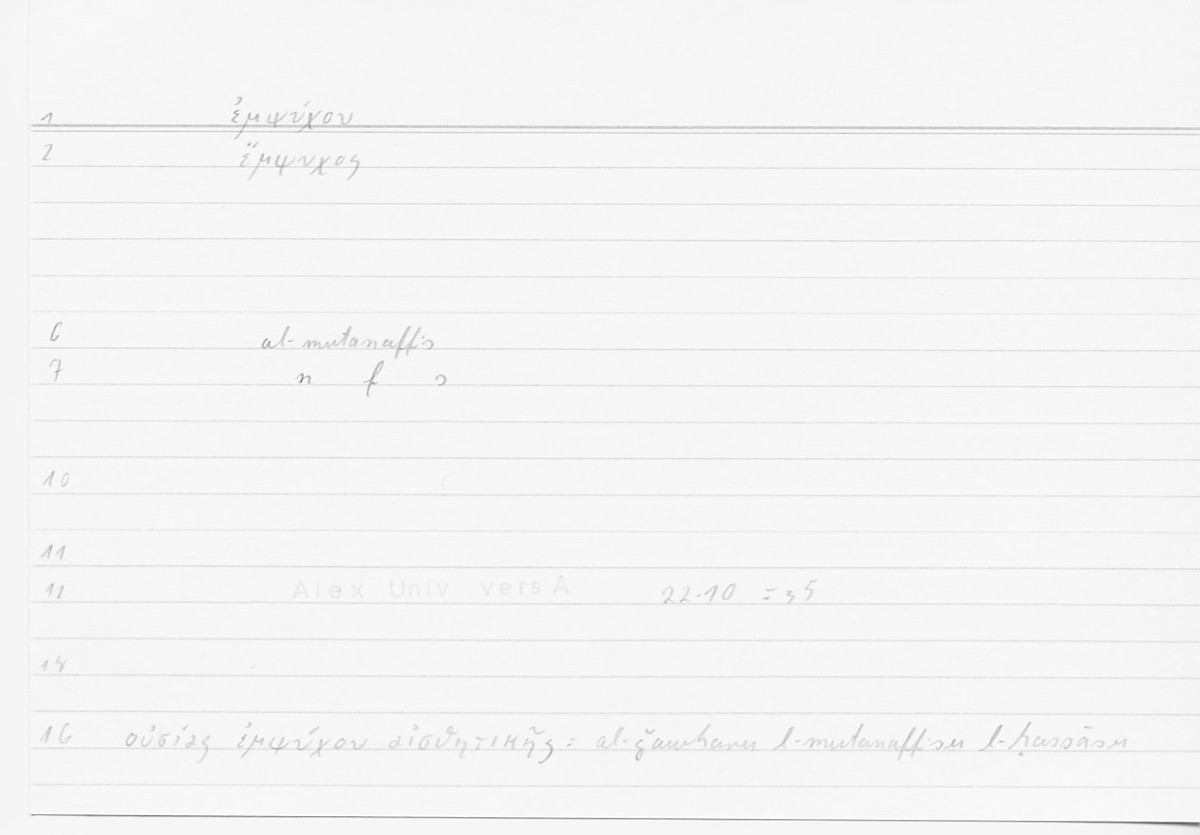 1 ἐμψύχου
2 ἔμψυχος
6 al-mutanaffis
7 n f s
10
11
12 Alex Univ vers A 22.10 = 35
14
16 οὐσίας ἐμψύχου αἰσθητικῆς : al-ǧawharu l-mutanaffisu l-ḥassāsu